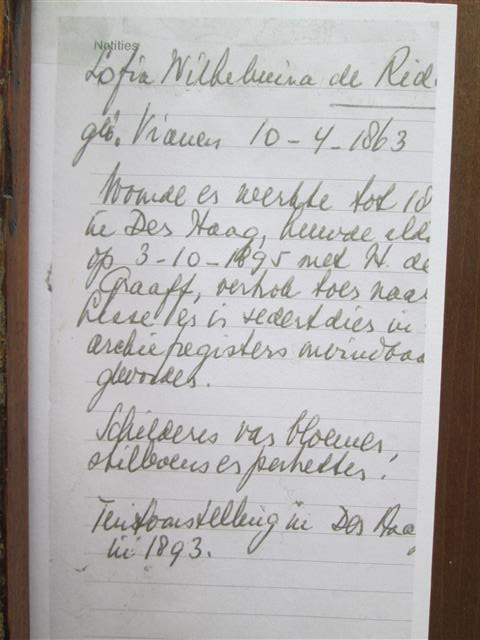 Notities
Sofia Wilhelmina de Rid
geb. Vianen 10-4-1863
Woonde en werkte tot 18
in Den Haag, huwde ald
op 3-10-1895 met H. de
Graaff, vertrok toen naar
Lisse en is sedertdien in
archiefregisters onvindbaa
geworden.
Schilderes van bloemen,
stillevens en portretten.
Tentoonstelling in Den Haag
in 1893.